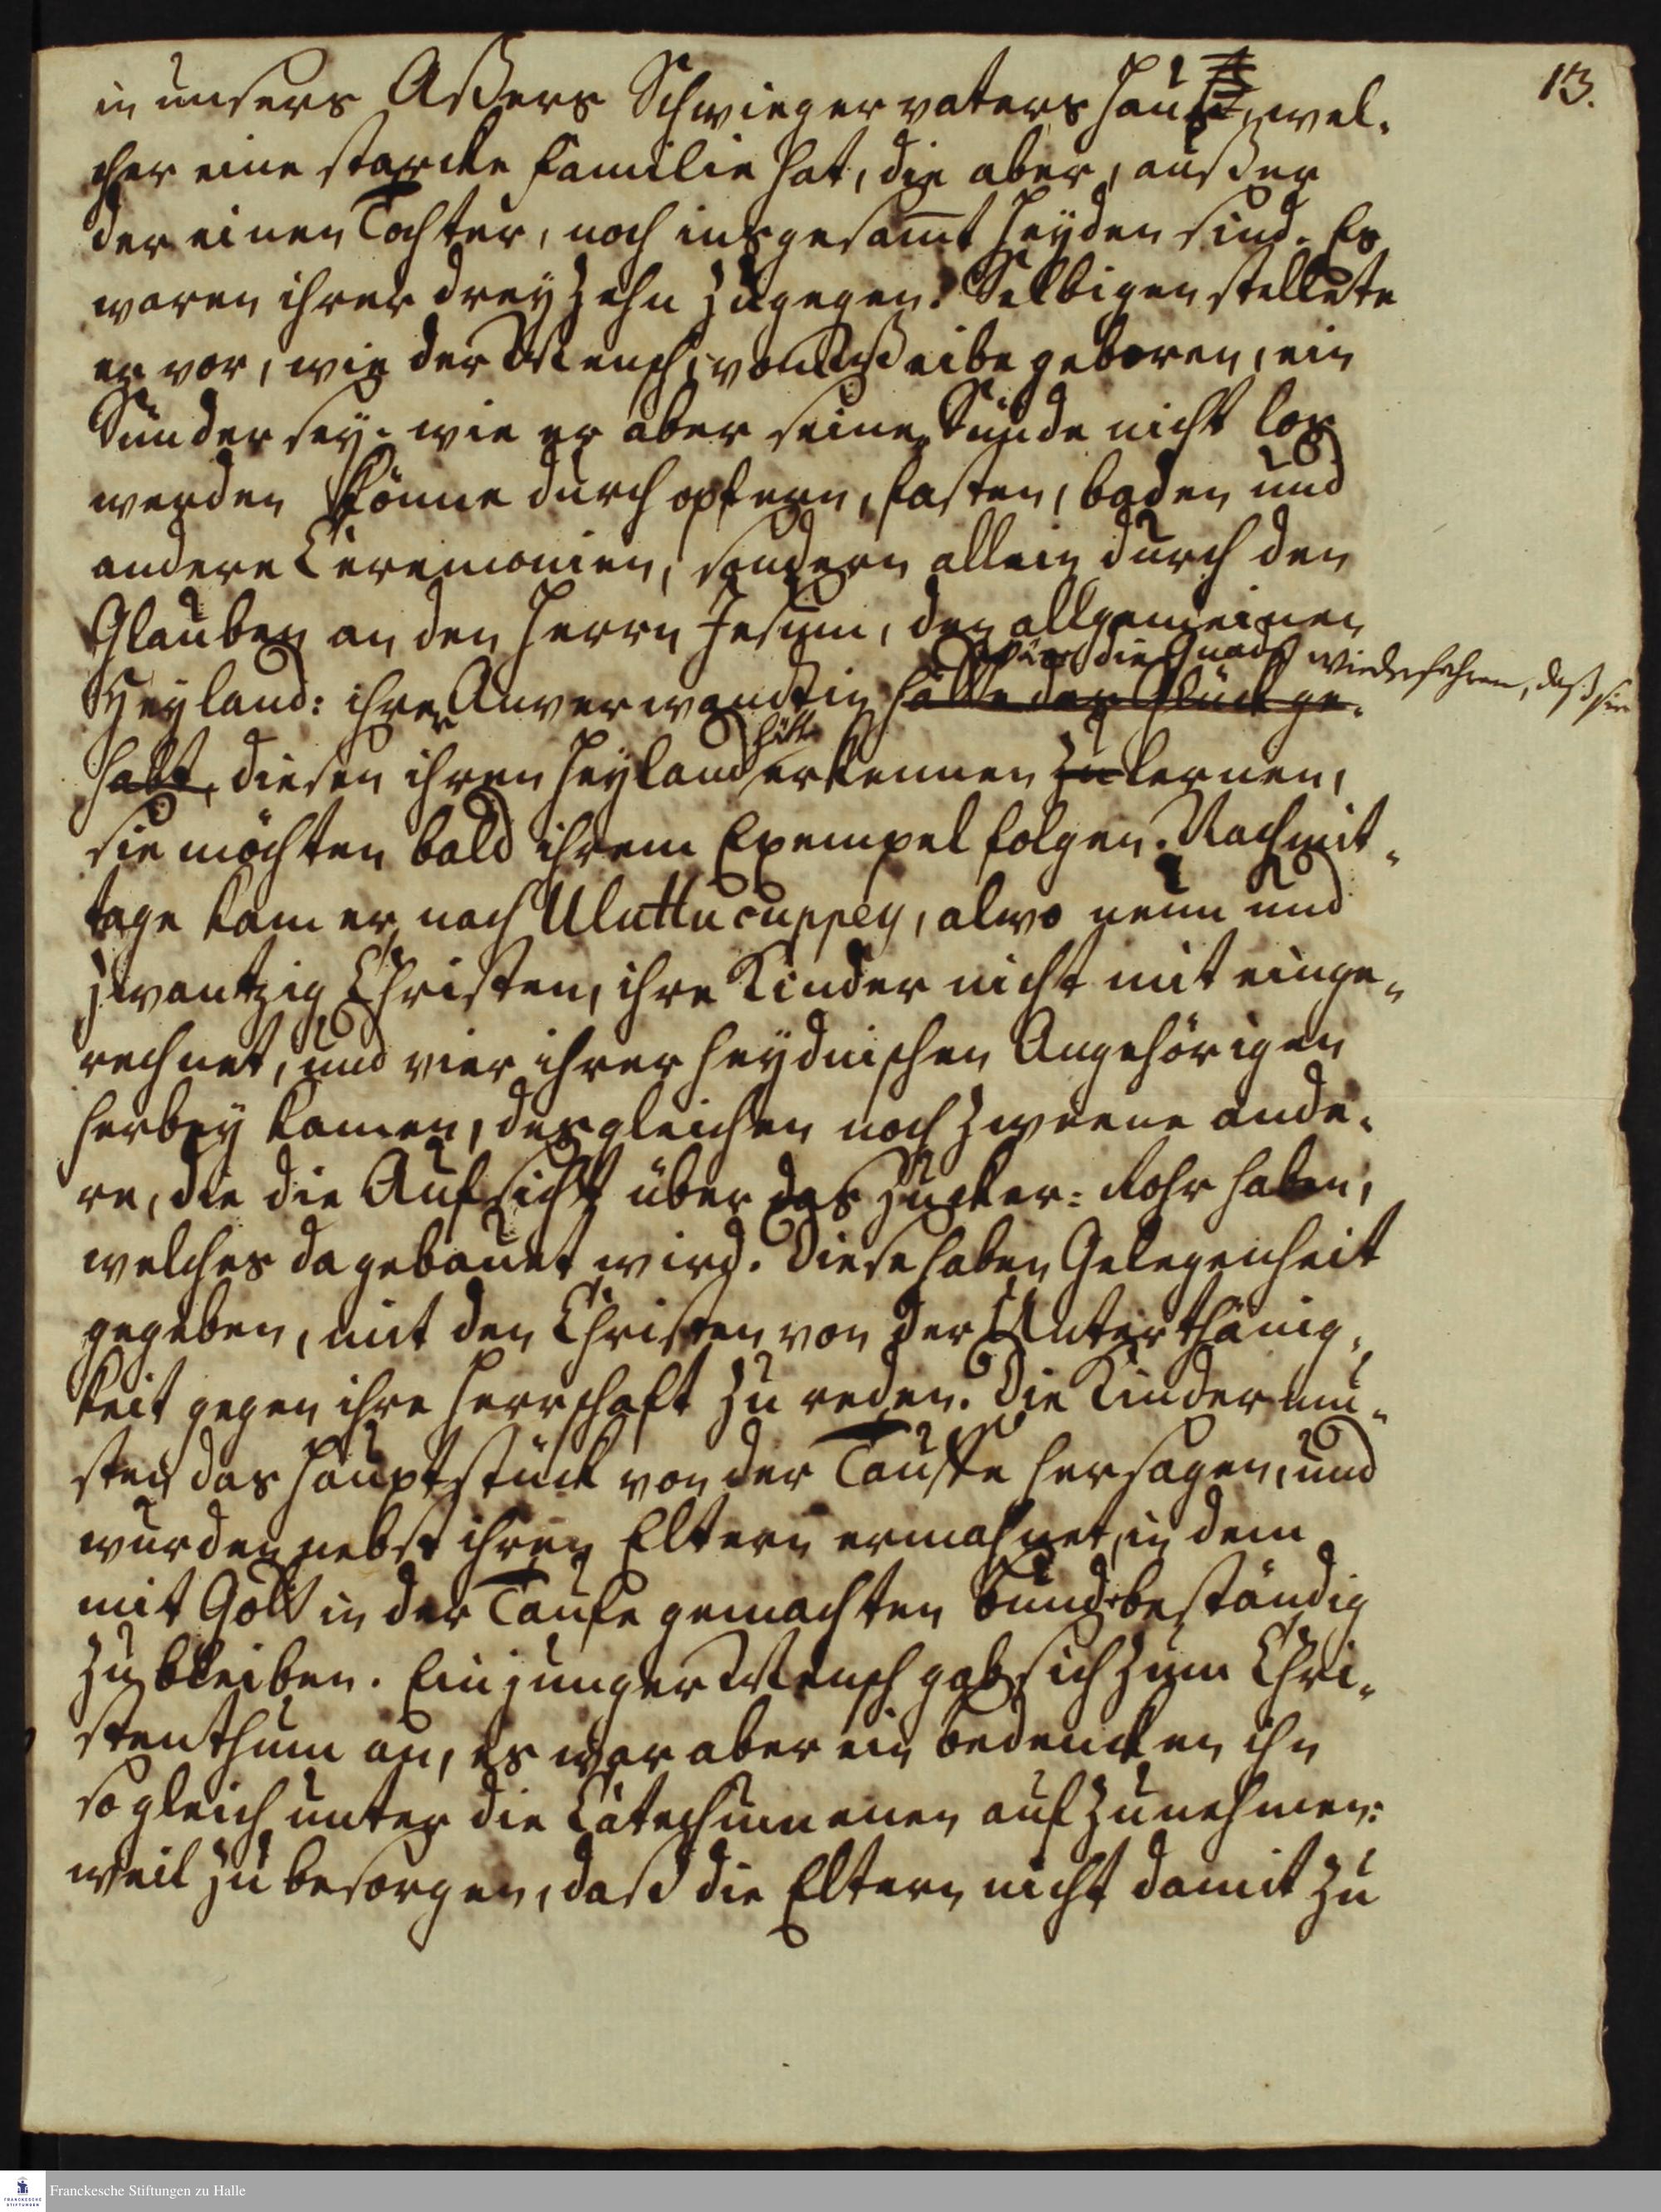 13.
in unsers Assers Schwiegervaters Hauß, wel-
cher eine starcke Familie hat, die aber, ausser
der einen Tochter, noch insgesam̅t Heyden sind. Es
waren ihrer dreyzehn zugegen. Selbigen stellete
er vor, wie der Mensch, vom Weibe geboren, ein
Sünder sey. wie er aber seine Sünde nicht los
werden könne durch opfern, fasten, baden und
andere Ceremonien, sondern allein durch den
Glauben an den Herrn Jesum, den allgemeinen
die Gnade wiederfahren, daß sie
Heyland: ihrer Anverwandtin hätte das Glück ge-
hätte
habt, diesen ihren Heyland erkennen zu lernen,
sie möchten bald ihrem Exempel folgen. Nachmit-
tage kam er nach Uluttucuppey, alwo neun und
zwantzig Christen, ihre Kinder nicht mit einge-
rechnet, und vier ihrer heydnischen Angehörigen
herbey kamen, desgleichen noch zweene ande-
re, die die Aufsicht über das Zucker-Rohr haben,
welches da gebauet wird. Diese haben Gelegenheit
gegeben, mit den Christen von der Unterthänig-
keit gegen ihre Herrschaft zu reden. Die Kinder mu-
sten das Hauptstück von der Tauffe hersagen, und
wurden nebst ihren Eltern ermahnet, in dem
mit Gott in der Taufe gemachten Bunde beständig
zu bleiben. Ein junger Mensch gab sich zum Chri-
stenthum an, es war aber ein bedencken ihn
sogleich unter die Catechumenen aufzunehmen:
weil zu besorgen, dass die Eltern nicht damit zu
Franckesche Stiftungen zu Halle